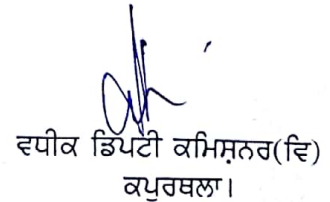 ਵਧੀਕ ਡਿਪਟੀ ਕਮਿਸ਼ਨਰ(ਵਿ)
ਕਪੂਰਥਲਾ।